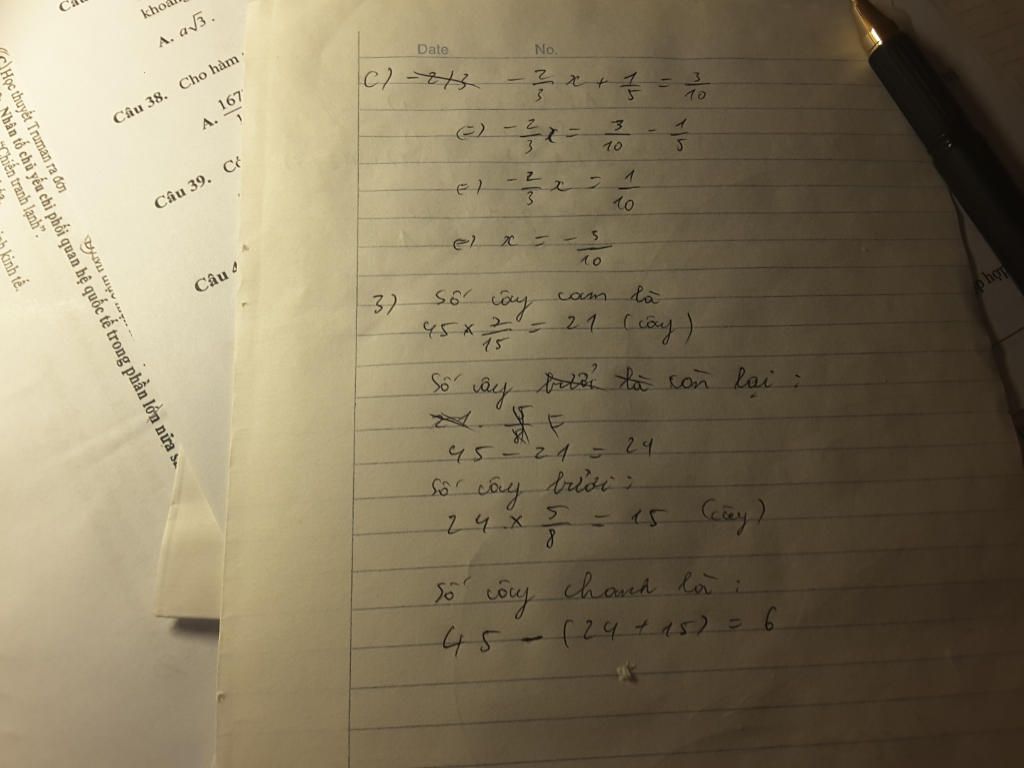 Câu
khoảng
A. a√3 .
Câu 38. Cho hàm
A. 167
Câu 39. Cô
Câu 4
(C) Học thuyết Truman ra đời
Nhân tố chủ yếu chi phối quan hệ quốc tế trong phần lớn nửa s
"Chiến tranh lạnh".
kinh tế.
hợp
Date No.
c) -2/3 x + 1/5 = 3/10
(=) -2/3 x = 3/10 - 1/5
(=) -2/3 x = 1/10
(=) x = -3/10
3) Số cây cam là
45 × 7/15 = 21 (cây)
Số ây bưởi là còn lại :
45 - 21 = 24
Số cây bưởi :
24 × 5/8 = 15 (cây)
Số cây chanh là :
45 - (24 + 15) = 6